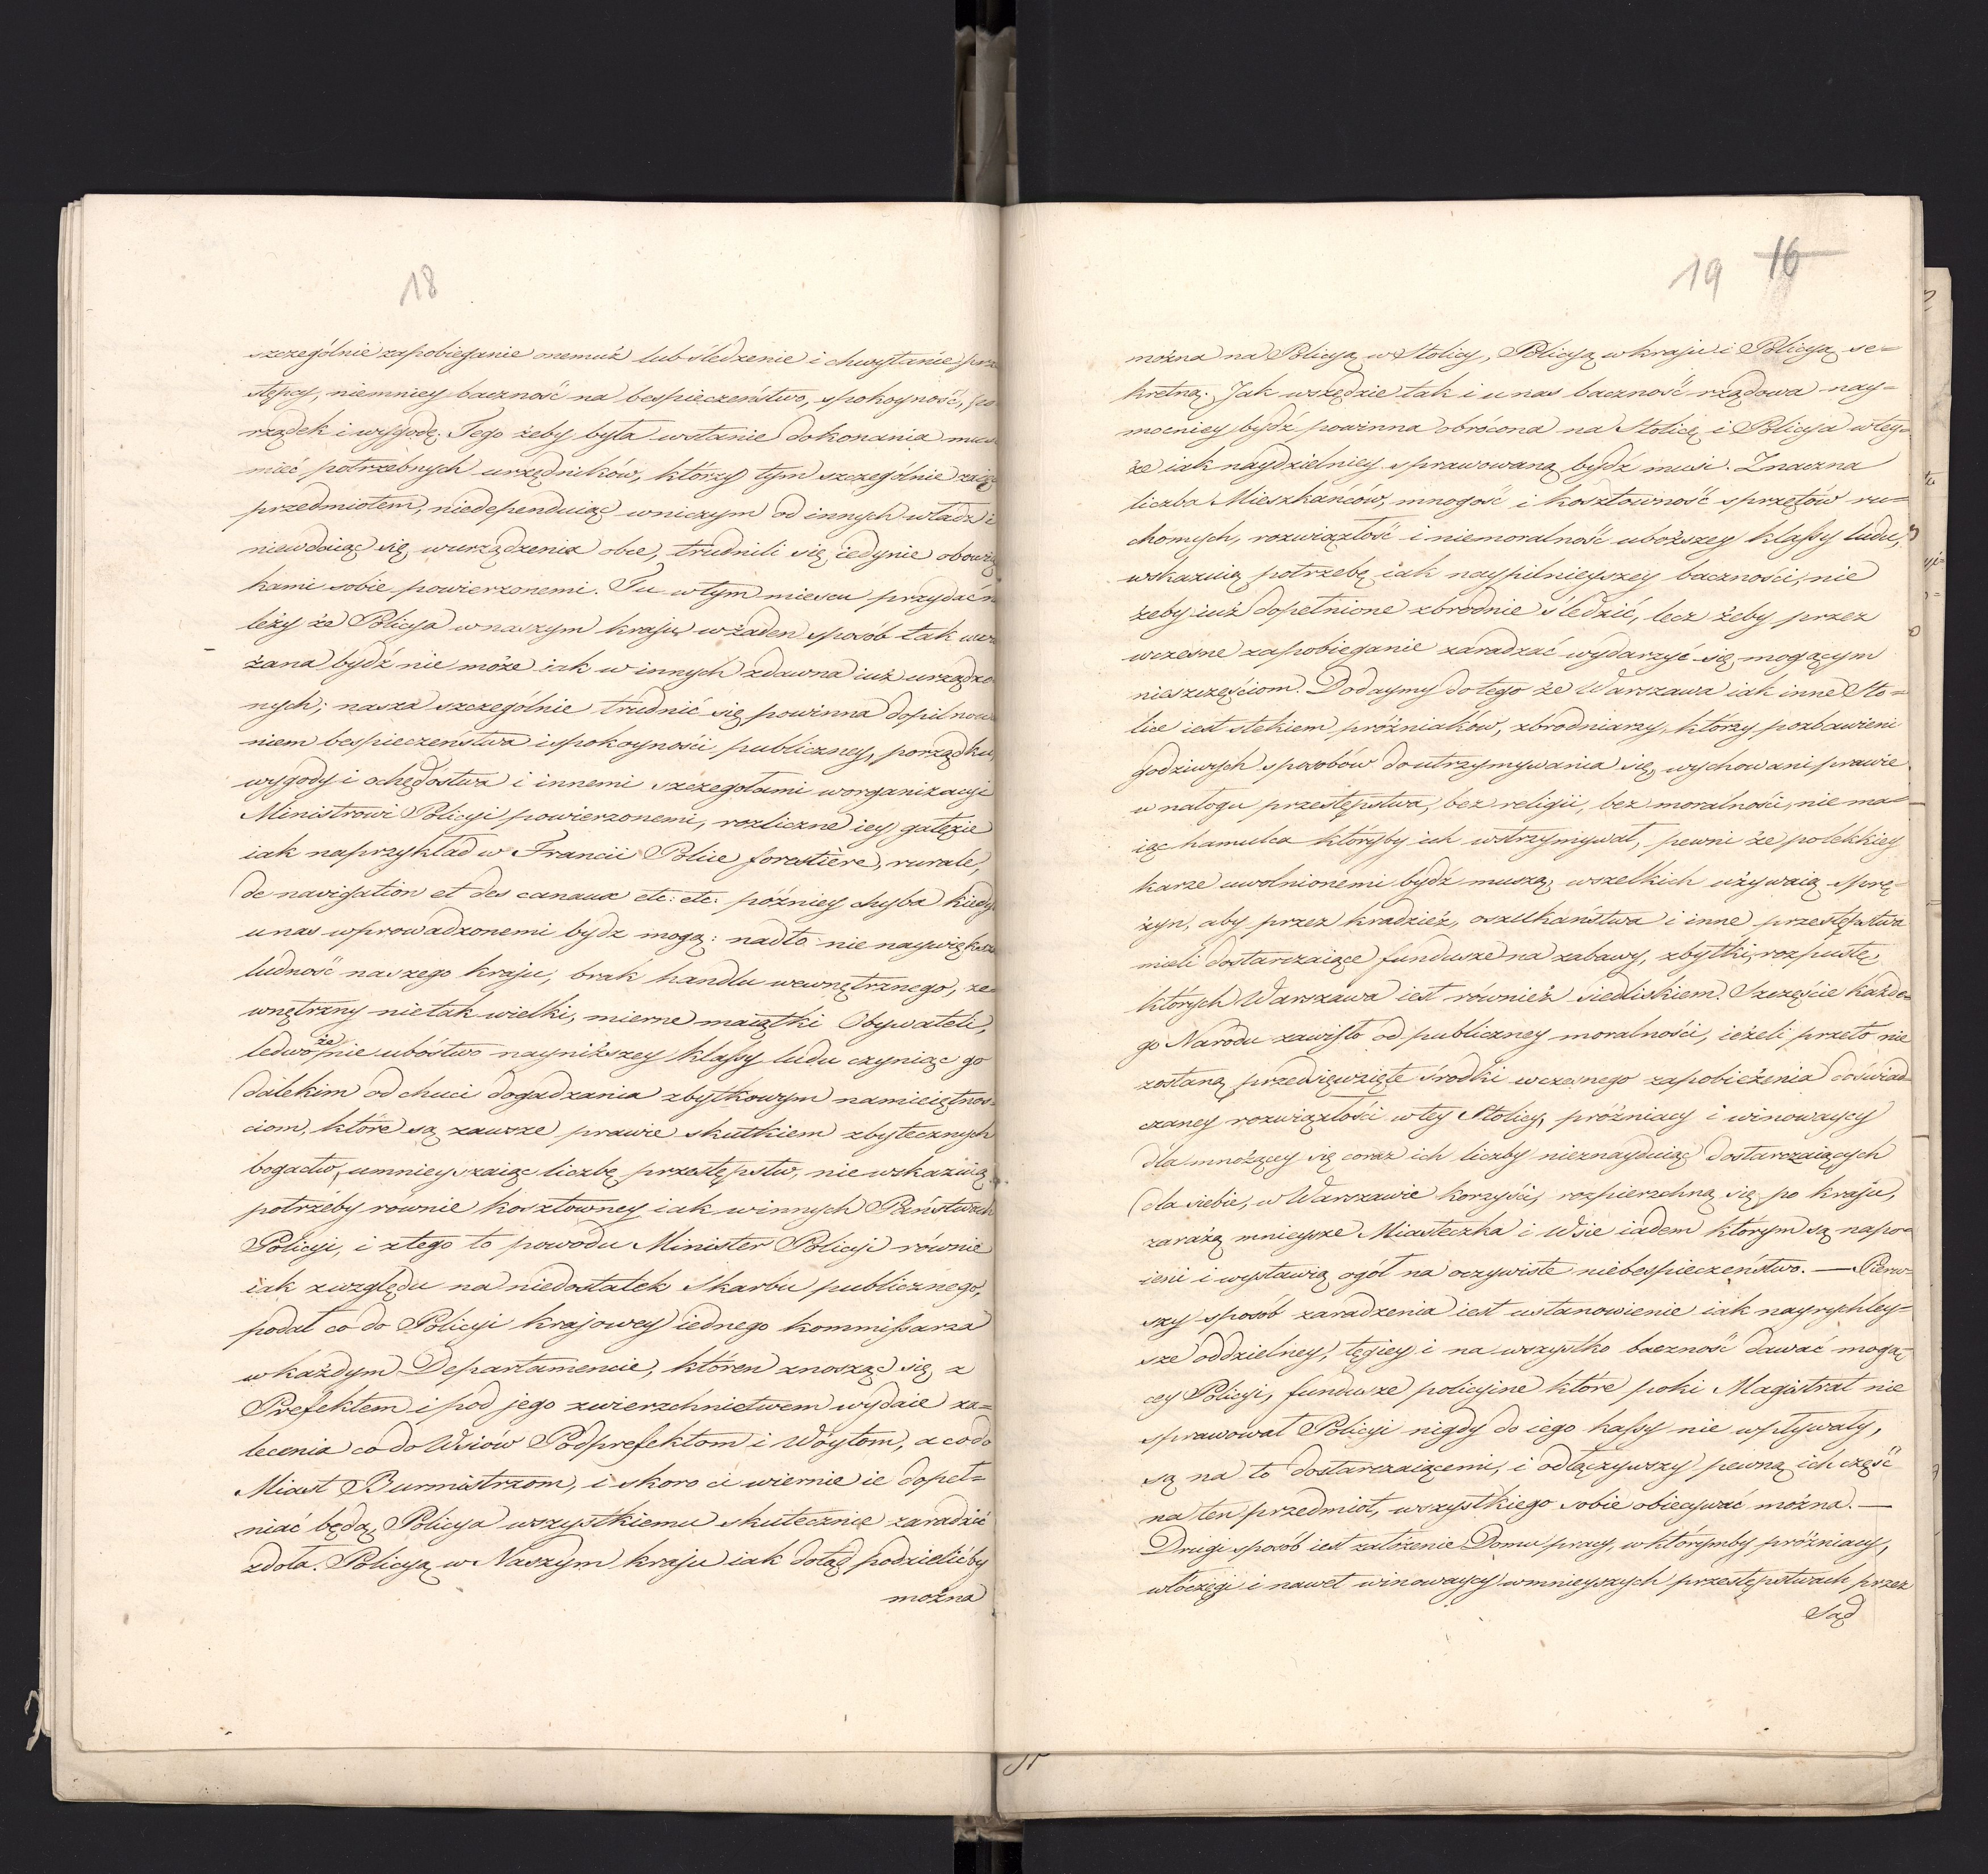 18
szczególnie zapobieganie onemuż lub śledzenie i chwytanie prze
stępcy, niemniey baczność na bespieczeństwo, spokoyność, po
rządek i wygodę. Tego żeby była wstanie dokonania musi
mieć potrzebnych urzędników, którzy tym szczególnie zaięci
przedmiotem, niedependuiąc wniczym od innych władz i
niewdaiąc się wurządzenia obce, trudnili się iedynie obowią
kami sobie powierzonemi. Tu wtym miescu przydać na
leży że Policya wnaszym kraju wżaden sposób tak uwa
żana bydź nie może iak w innych zdawna iuż urządzo
nych; nasza szczególnie trudnić się powinna dopilnowa
niem bespieczeństwa i spokoyności publiczney, porządku,
wygody i ochędostwa i innemi szczegołami worganizacyi
Ministrowi Policyi powierzonemi, rozliczne iey gałęzie
iak naprzykład w Francii Police forestière, rurale,
de navigation et des canaux etc: etc: późniey chyba kiedy
unas wprowadzonemi bydz mogą: nadto nie naywiększa
ludność naszego kraju, brak handlu wewnętrznego, ze=
wnętrzny nietak wielki, mierne maiątki Obywateli,
że
ledwo nie ubóstwo nayniższey klassy ludu czyniąc go
dalekim od chuci dogadzania zbytkowym namiętnos=
ciom, które są zawsze prawie skutkiem zbytecznych
bogactw, umnieyszaiąc liczbę przestępstw, nie wskazuią
potrzeby równie kosztowney iak winnych Państwach
Policyi, i ztego to powodu Minister Policyi równie
iak zwzględu na niedostatek Skarbu publicznego,
podał co do Policyi krajowey iednego kommissarza
wkażdym Departamencie, któren znosząc się z
Prefektem i pod jego zwierzchnictwem wydaie za=
lecenia co do Wsiów Podprefektom i Wóytom, a co do
Miast Burmistrzom, i skoro ci wiernie ie dopeł=
niać będą, Policya wszystkiemu skutecznie zaradzić
zdoła. Policyą w Naszym kraju iak dotąd podzielićby
można
19 16
można na Policyą w Stolicy, Policyą wkraju i Policyą se=
kretną. Jak wszędzie tak i unas baczność rządowa nay=
mocniey bydź powinna obrócona na Stolicę i Policya wtey=
że iak naydzielniey sprawowaną bydź musi. Znaczna
liczba Mieszkańców, mnogość i kosztowność sprzętów ru=
chomych, rozwiązłość i niemoralność uboższey klassy ludu,
wskazuią potrzebę iak naypilnieyszey baczności, nie
żeby iuż dopełnione zbrodnie śledzić, lecz żeby przez
wczesne zapobieganie zaradzać wydarzyć się mogącym
nieszczęściom. Dodaymy do tego że Warszawa iak inne Sto=
lice iest stekiem próżniaków, zbrodniarzy, którzy pozbawieni
godziwych sposobów do utrzymywania się, wychowani prawie
w nałogu przestępstwa, bez religii, bez moralności, nie ma=
iąc hamulca któryby ich wstrzymywał, pewni że polekkiey
karze uwolnionemi bydź muszą, wszelkich używaią sprę=
żyn, aby przez kradzież, oszukaństwa i inne przestępstwa
mieli dostarczaiące fundusze na zabawy, zbytki, rozpustę,
których Warszawa iest również siedliskiem. Szczęście każde=
go Narodu zawisło od publiczney moralności, ieżeli przeto nie
zostaną przedsięwzięte środki wczesnego zapobieżenia doświad=
czaney rozwiązłości wtey Stolicy, próżniacy i winowaycy
dla mnożącey się coraz ich liczby nieznayduiąc dostarczaiących
dla siebie, w Warszawie korzyści, rozpierzchną się po kraju,
zarażą mnieysze Miasteczka i Wsie iadem którym są napo=
ieni i wystawią ogół na oczywiste niebespieczeństwo. — Pierw=
szy sposób zaradzenia iest ustanowienie iak nayrychley=
sze oddzielney, tęgiey i na wszystko baczność dawać mogą=
cey Policyi, fundusze policyine które poki Magistrat nie
sprawował Policyi nigdy do iego kassy nie wpływały,
są na to dostarczaiącemi, i odłączywszy pewną ich część
na ten przedmiot, wszystkiego sobie obiecywać można. —
Drugi sposób iest założenie Domu pracy, w którymby próżniacy,
włóczęgi i nawet winowaycy wmnieyszych przestępstwach przez
Sąd